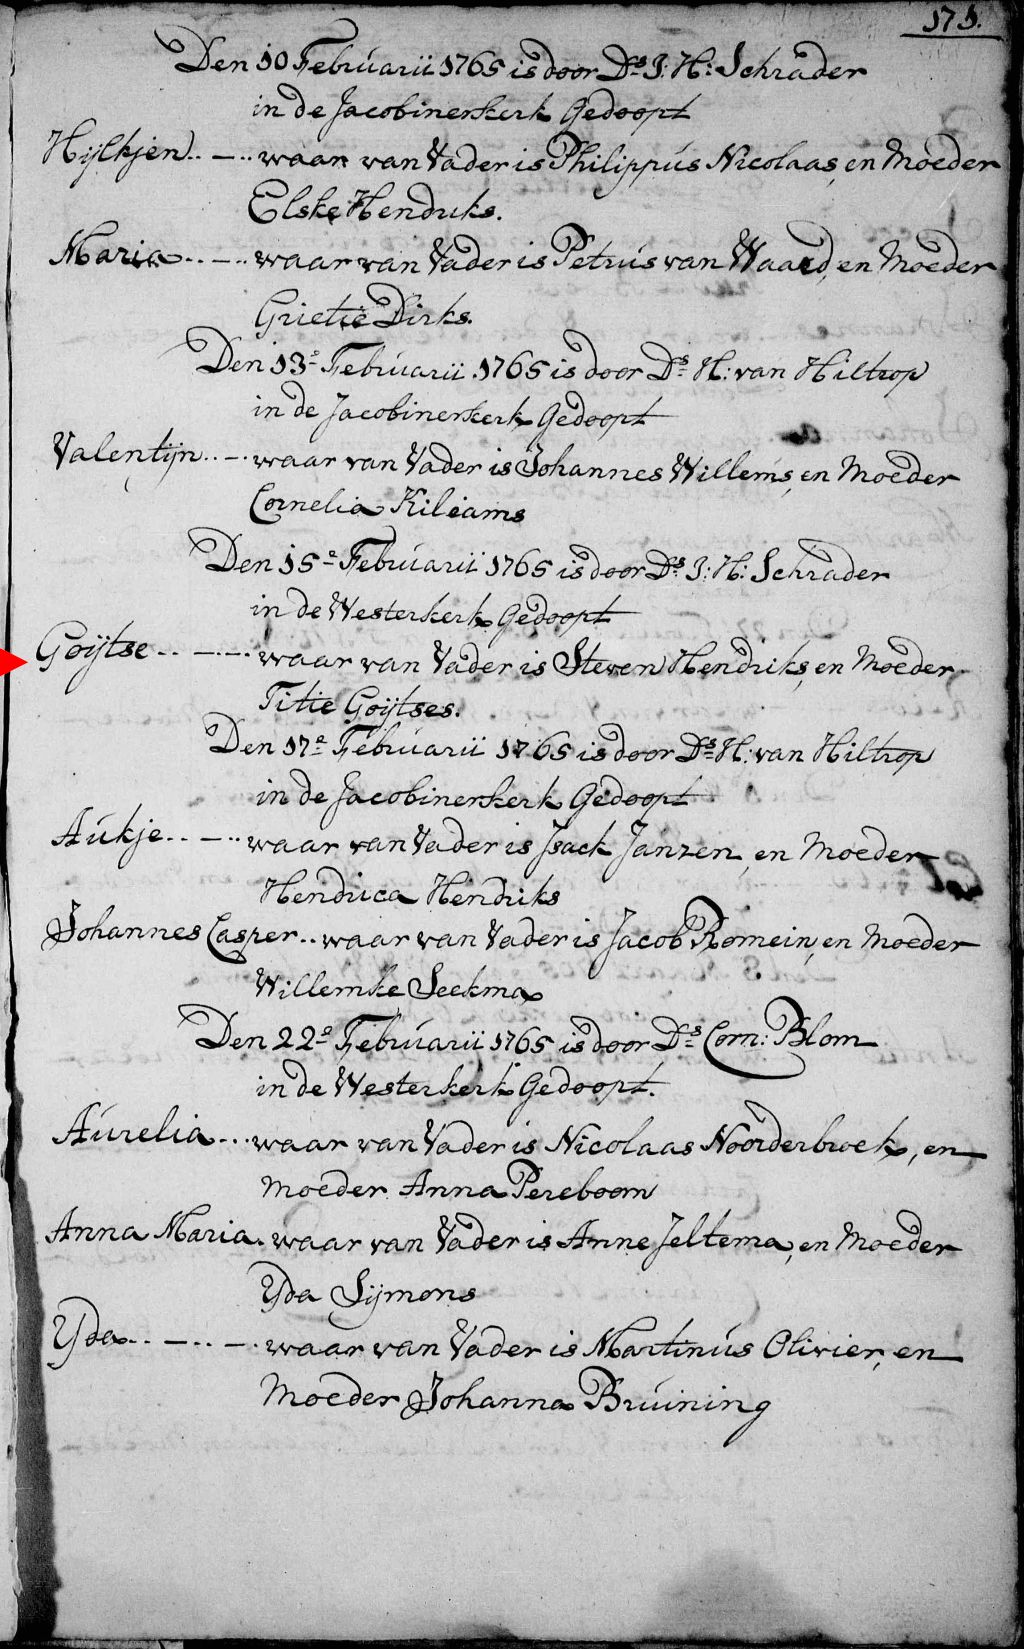 175.
Den 10 Februarii 1765 is door Ds. J: H: Schrader
in de Jacobinerkerk Gedoopt
Hijlkjen..-..waar van Vader is Philippus Nicolaas, en Moeder
Elske Hendriks.
Maria..-..waar van Vader is Petrus van Waard, en Moeder
Grietie Dirks.
Den 13e Februarii 1765 is door Ds. H: van Hiltrop
in de Jacobinerkerk Gedoopt
Valentijn..-..waar van Vader is Johannes Willems, en Moeder
Cornelia Kiliams
Den 15e Februarii 1765 is door Ds. J: H: Schrader
in de Westerkerk Gedoopt
Goijtse..-..-..waar van Vader is Steven Hendriks, en Moeder
Titie Goijtses.
Den 17e Februarii 1765 is door Ds. H: van Hiltrop
in de Jacobinerkerk Gedoopt
Aukje..-..waar van Vader is Isack Janzen, en Moeder
Hendrica Hendriks
Johannes Casper..waar van Vader is Jacob Romein, en Moeder
Willemke Seekma
Den 22e Februarii 1765 is door Ds. Corn: Blom
in de Westerkerk Gedoopt.
Aurelia...waar van Vader is Nicolaas Noorderbroek, en
Moeder Anna Pereboom
Anna Maria.waar van Vader is Anne Jeltema, en Moeder
Yda Sijmons
Yda..-..-.waar van Vader is Martinus Olivier, en
Moeder Johanna Bruining